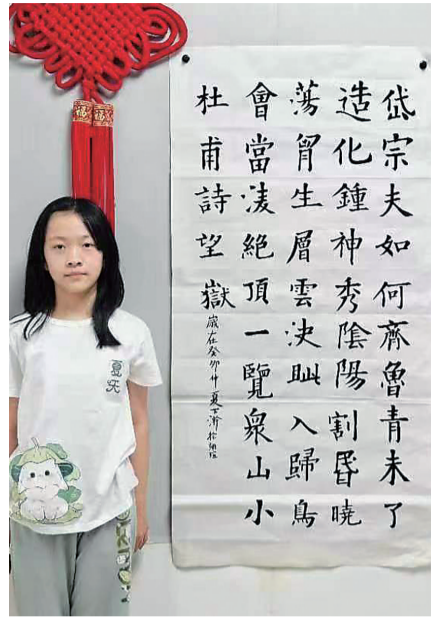 岱宗夫如何齊魯青未了
造化鍾神秀陰陽割昬曉
蕩胷生層雲決眦入歸鳥
會當凌絕頂一覽衆山小
杜甫詩望嶽
歲在癸卯
夏天
福
福